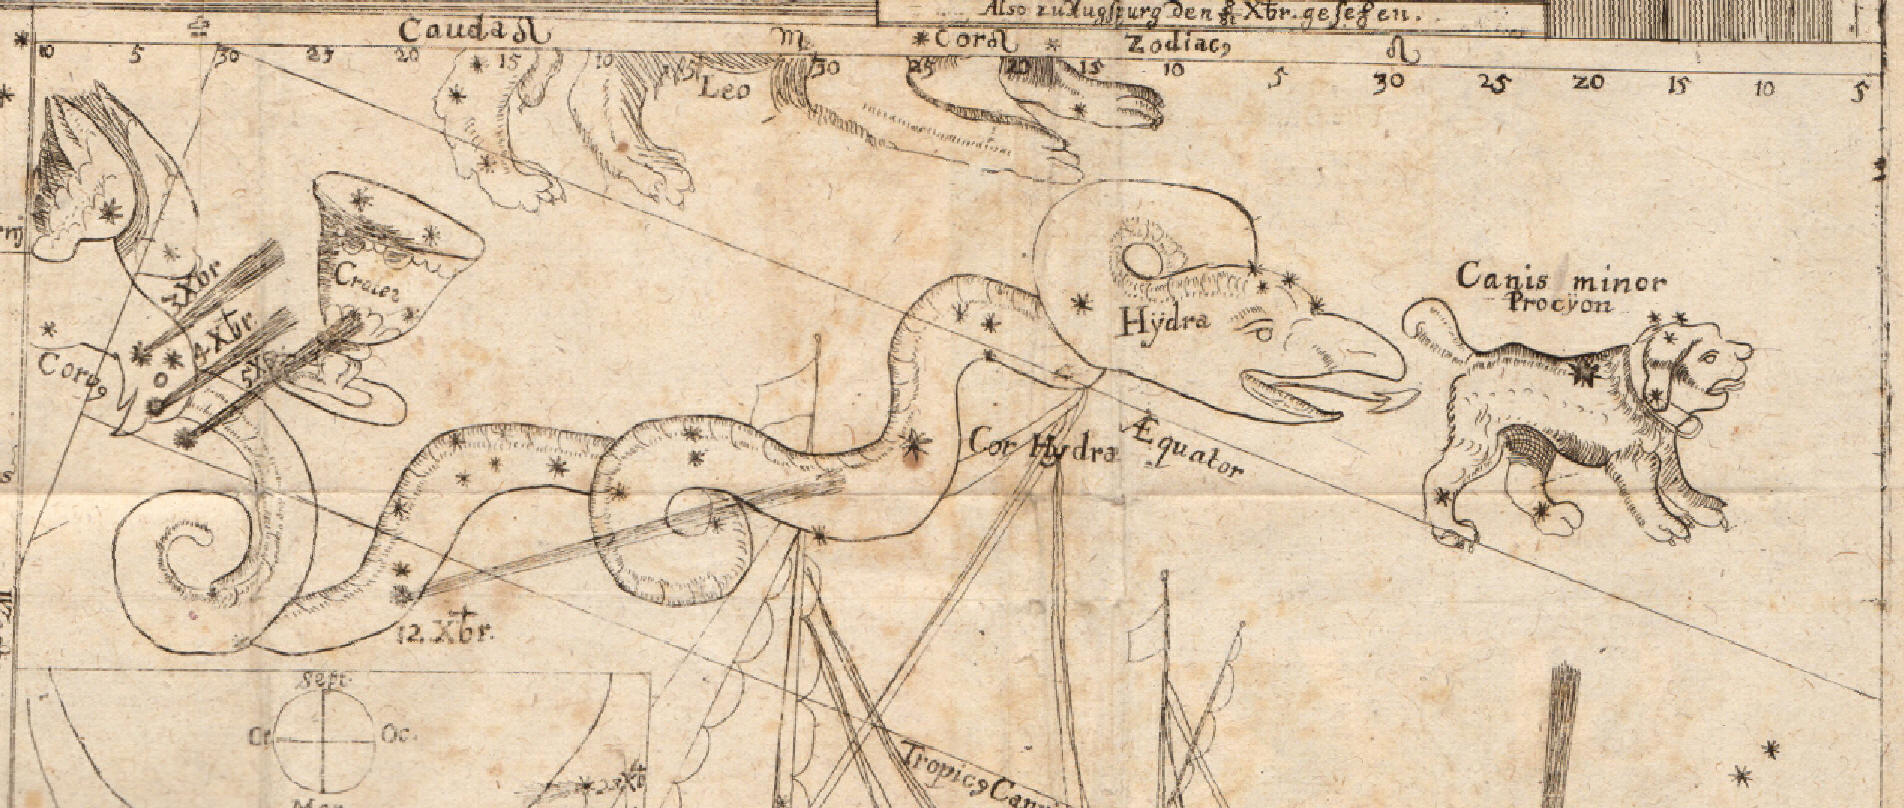 Also zu Augspurg den Xbr. gesehen.
Cauda ♌ ♍ Cor ♌ Zodiacꝰ ♌
♎
10 5 30 25 20 15 10 5 30 25 20 15 10 5 30 25 20 15 10 5
Leo
Crater
3 Xbr
4 Xbr
5 X
Corvꝰ
Hÿdra
Canis minor
Procÿon
Cor Hydræ
Æquator
12. Xbr.
Sept.
Oc.
Mer.
Tropicꝰ